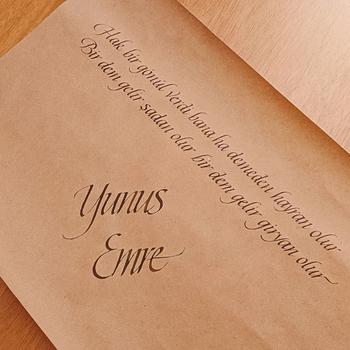 Hak bir gönül verdi bana ha demeden hayran olur
Bir dem gelir şadan olur bir dem gelir giryan olur
Yunus
Emre